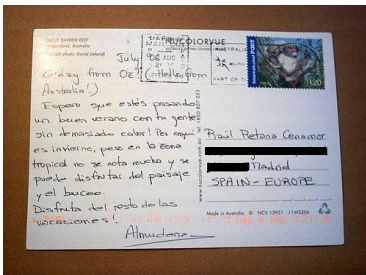 GREAT BARRIER REEF
Queensland, Australia
NUCOLORVUE
July
G'day from Oz! (Hello from
Australia!)
Espero que estés pasando
un buen verano con tu gente
sin demasiado calor! Por aquí
es invierno, pero en la zona
tropical no se nota mucho y se
puede disfrutar del paisaje
y el buceo.
Disfruta del resto de las
vacaciones!
Almudena
AUSTRALIA
PART OF
06 AUG
$1.20
Raúl Retana Cenamor
Madrid
SPAIN - EUROPE
Made in Australia